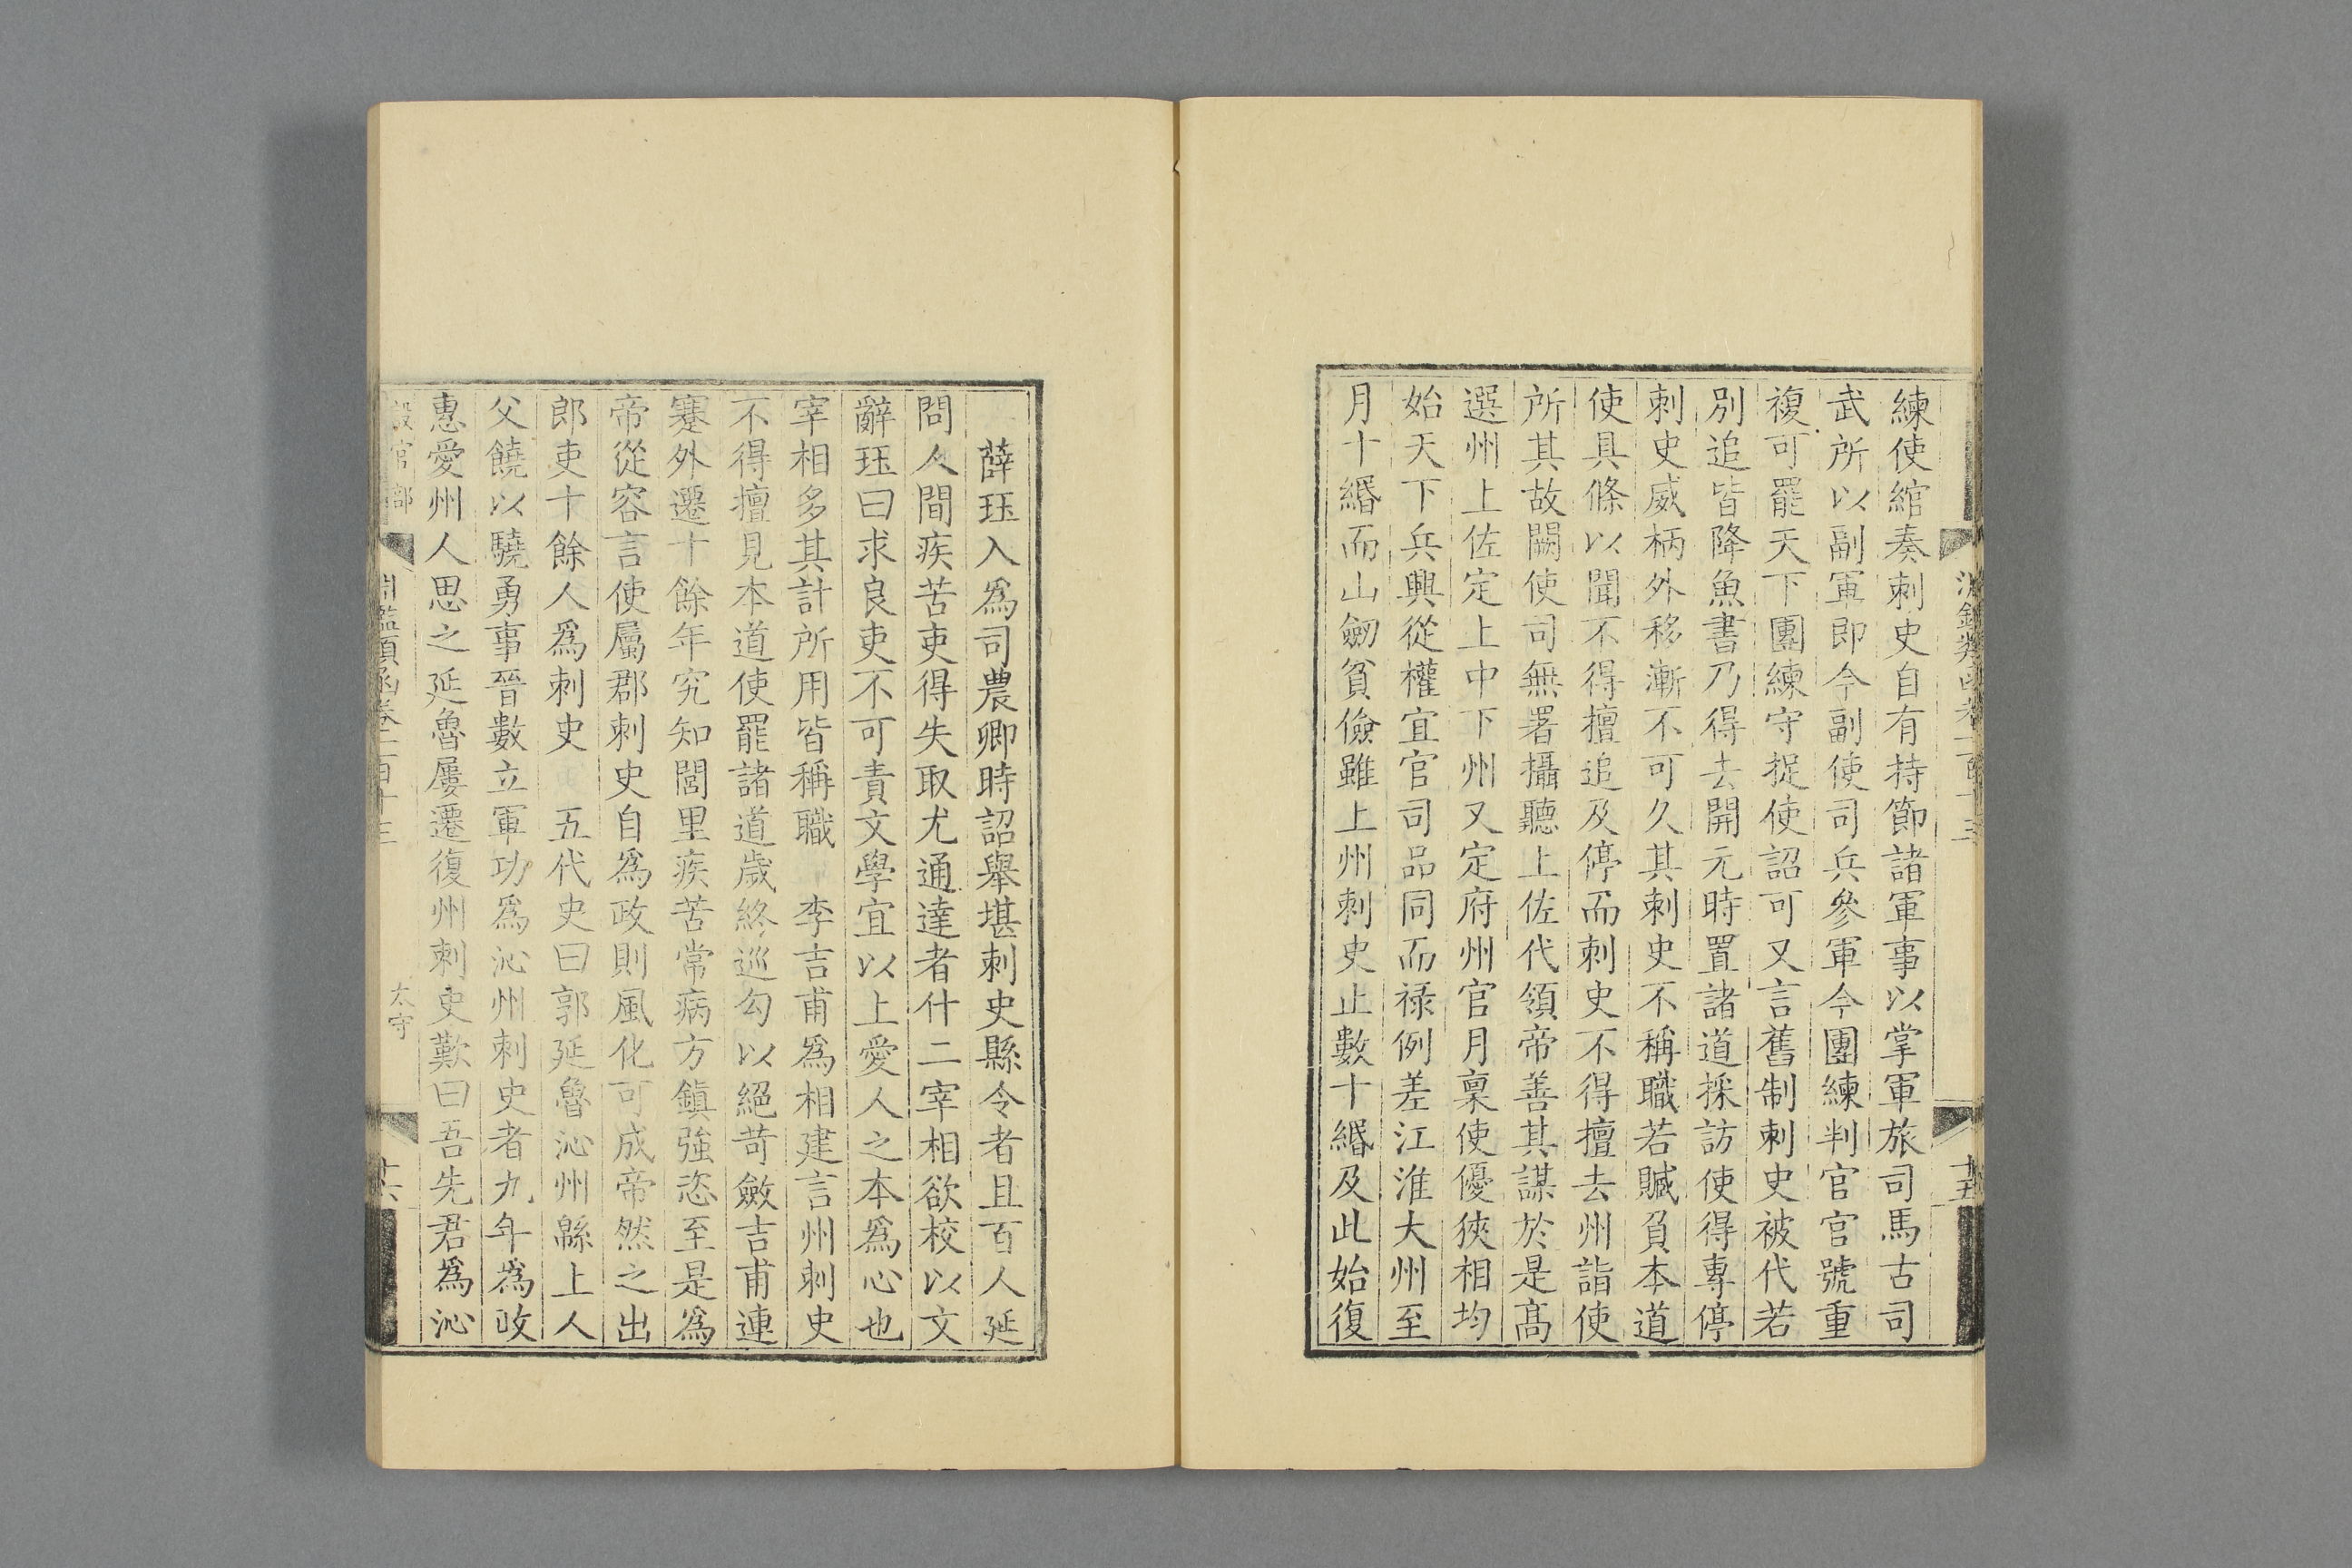 練使綰奏刺史自有持節諸軍事以掌軍旅司馬古司
武所以副軍即今副使司兵參軍今團練判官官號重
複可罷天下團練守捉使詔可又言舊制刺史被代若
別追皆降魚書乃得去開元時置諸道採訪使得專停
刺史威柄外移漸不可久其刺史不稱職若贓負本道
使具條以聞不得擅追及停而刺史不得擅去州詣使
所其故闕使司無署攝聽上佐代領帝善其謀於是髙
選州上佐定上中下州又定府州官月稟使優狹相均
始天下兵興從權宜官司品同而禄例差江淮大州至
月十緡而山劒貧儉雖上州刺史止數十緡及此始復
薛珏入爲司農卿時詔舉堪刺史縣令者且百人延
問人間疾苦吏得失取尤通達者什二宰相欲校以文
辭珏曰求良吏不可責文學宜以上愛人之本爲心也
宰相多其計所用皆稱職 李吉甫爲相建言州刺史
不得擅見本道使罷諸道歲終巡勾以絕苛斂吉甫連
蹇外遷十餘年究知閭里疾苦常病方鎮強恣至是爲
帝從容言使屬郡刺史自爲政則風化可成帝然之出
郎吏十餘人爲刺史 五代史曰郭延魯沁州緜上人
父饒以驍勇事晉數立軍功爲沁州刺史者九年爲政
惠愛州人思之延魯屢遷復州刺史歎曰吾先君爲沁
設官部 淵鑑類函卷一百十三 太守 十六